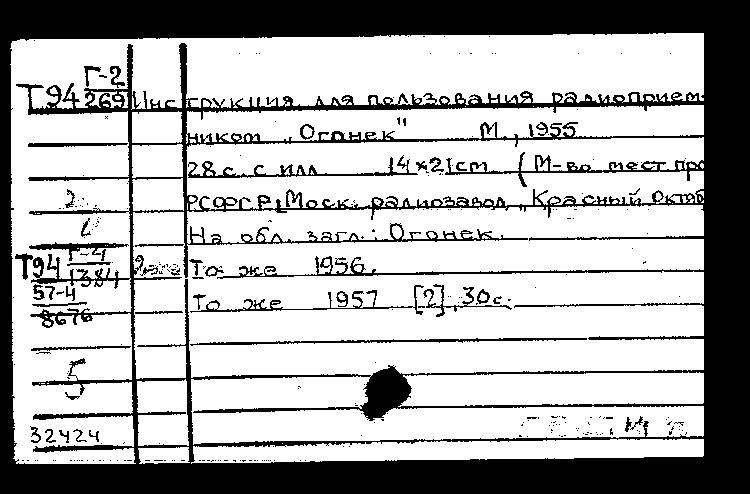 Т94 Г-2
269 Инструкция для пользования радиоприем-
ником „Огонек" М., 1955
28 с. с илл. 14×21 cm (М-во мест про
РСФСР. Моск. радиозавод „Красный Октяб
На обл. загл.: Огонек.
Т94 Г-4
1384 То же 1956.
57-4
8676 То же 1957 [2], 30 с.
5
32424